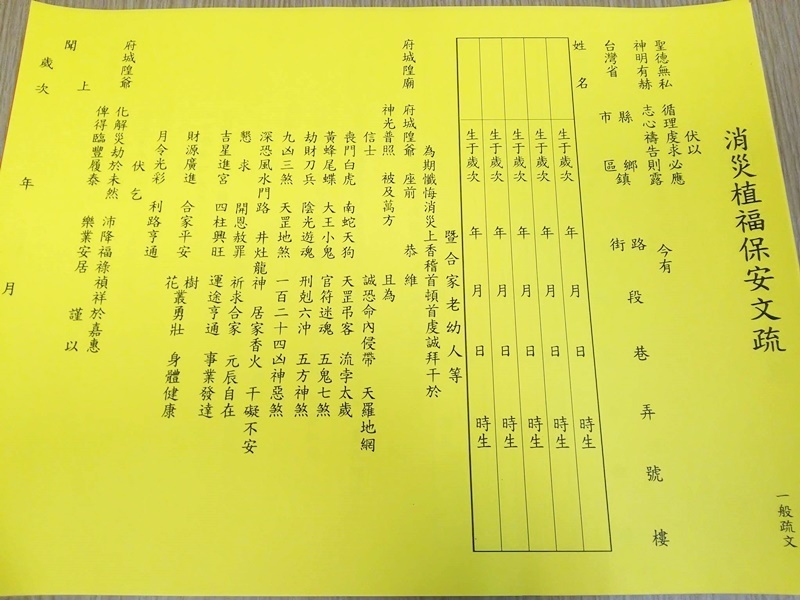 消災植福保安文疏
一般疏文
伏以
聖德無私 循理虔求必應
神明有赫 志心禱告則露
今有
台灣省 縣市 鄉鎮區 路街 段 巷 弄 號 樓
姓名
生于歲次 年 月 日 時生
生于歲次 年 月 日 時生
生于歲次 年 月 日 時生
生于歲次 年 月 日 時生
生于歲次 年 月 日 時生
暨合家老幼人等
為期懺悔消災上香稽首頓首虔誠拜干於
府城隍廟 府城隍爺 座前 恭維
神光普照 被及萬方 且為
信士 誠恐命內侵帶 天羅地網
喪門白虎 南蛇天狗 天罡弔客 流孛太歲
黃蜂尾蝶 大王小鬼 官符迷魂 五鬼七煞
劫財刀兵 陰光遊魂 刑剋六沖 五方神煞
九凶三煞 天罡地煞 一百二十四凶神惡煞
深恐風水門路 井灶龍神 居家香火 干礙不安
懇求 開恩赦罪 祈求合家 元辰自在
吉星進宮 四柱興旺 運途亨通 事業發達
財源廣進 合家平安 樹花叢勇壯 身體健康
月令光彩 利路亨通
伏乞
化解災劫於未然 沛降福祿禎祥於嘉惠
俾得臨豐履泰 樂業安居 謹以
府城隍爺
上
聞
歲次 年 月